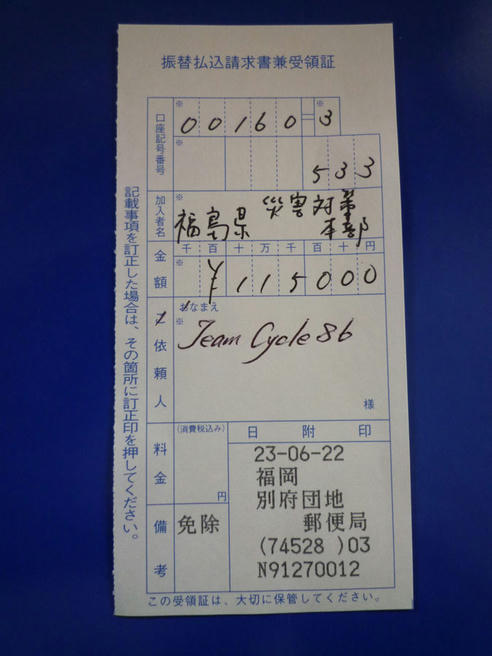 振替払込請求書兼受領証
口座記号番号
※
00160
※
3
※
533
加入者名
※
福島県 災害対策本部
金額
千百十万千百十円
※
¥115000
ご依頼人
おなまえ
※
Team Cycle 86
様
料金
(消費税込み)
円
日附印
23-06-22
福岡
別府団地
郵便局
(74528 )03
N91270012
備考
免除
記載事項を訂正した場合は、その箇所に訂正印を押してください。
この受領証は、大切に保管してください。